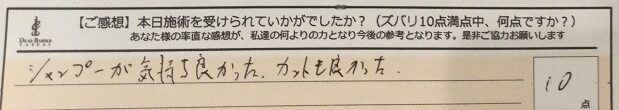 【ご感想】本日施術を受けられていかがでしたか？（ズバリ10点満点中、何点ですか？）
DEAR BARBER
あなた様の率直な感想が、私達の何よりの力となり今後の参考となります。是非ご協力お願いします
シャンプーが気持ち良かった。カットも良かった.
10
点